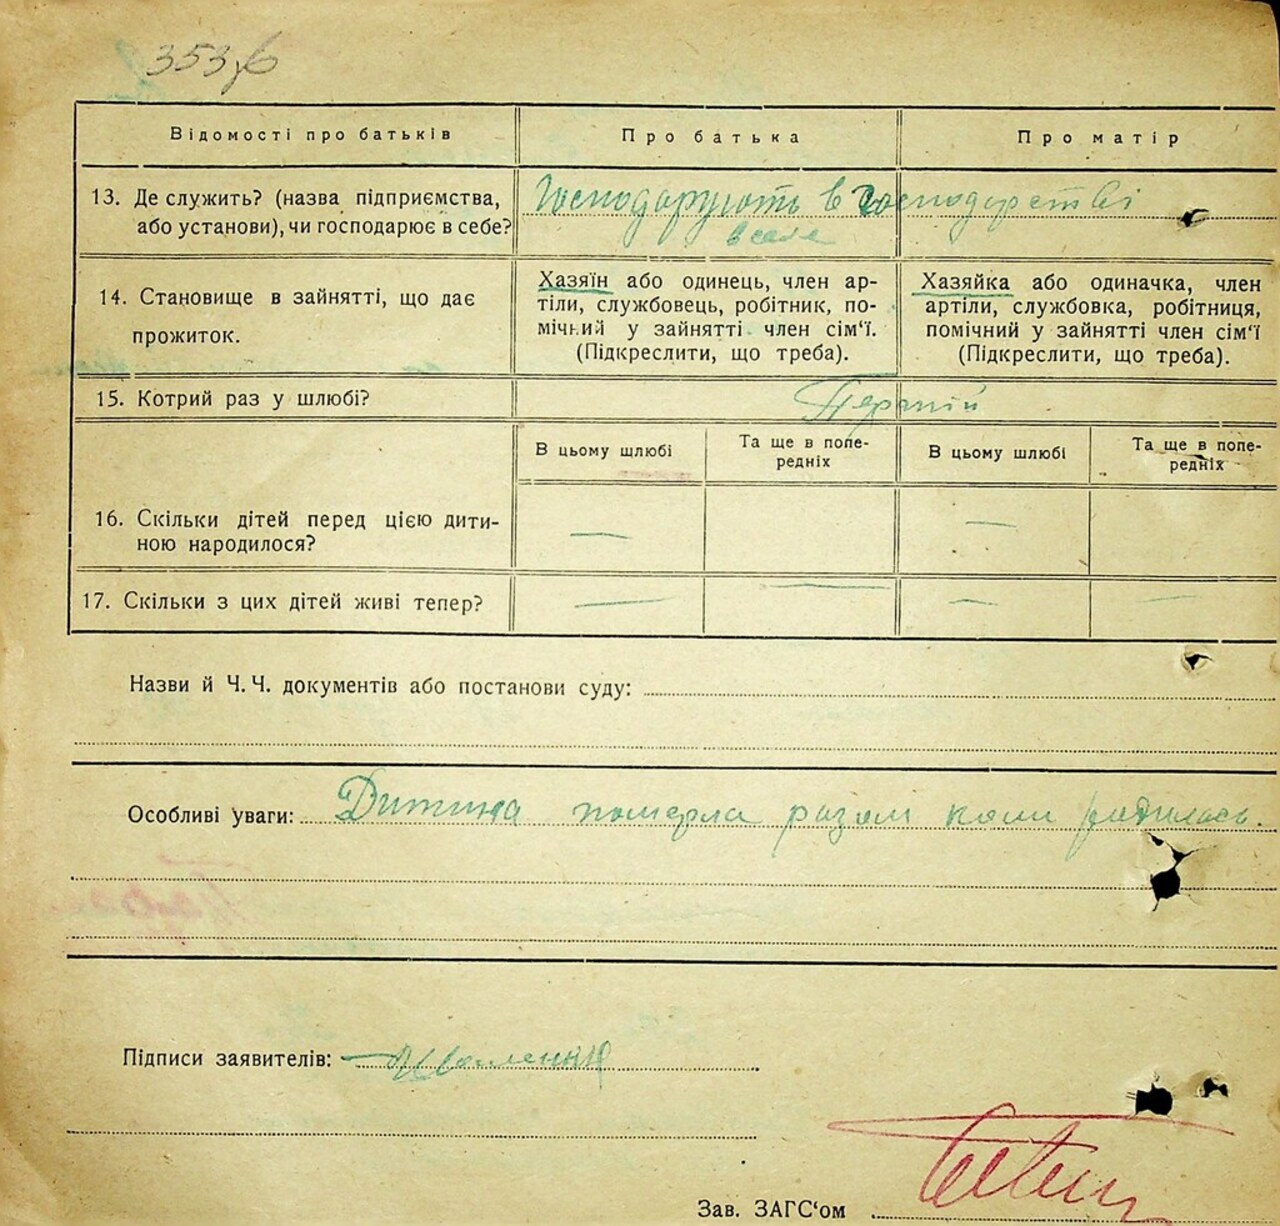 353
Відомості про батьків
Про батька
Про матір
13. Де служить? (назва підприємства,
або установи), чи господарює в себе?
Господарують в господарстві
в селі
14. Становище в зайнятті, що дає
прожиток.
Хазяїн або одинець, член ар-
тіли, службовець, робітник, по-
мічний у зайнятті член сім‘ї.
(Підкреслити, що треба).
Хазяйка або одиначка, член
артіли, службовка, робітниця,
помічний у зайнятті член сім‘ї
(Підкреслити, що треба).
15. Котрий раз у шлюбі?
Перший
В цьому шлюбі
Та ще в попе-
редніх
В цьому шлюбі
Та ще в попе-
редніх
16. Скільки дітей перед цією дити-
ною народилося?
—
—
17. Скільки з цих дітей живі тепер?
—
—
—
—
Назви й Ч. Ч. документів або постанови суду:
Особливі уваги: Дитина померла разом коли родилась.
Підписи заявителів:
Зав. ЗАГС‘ом